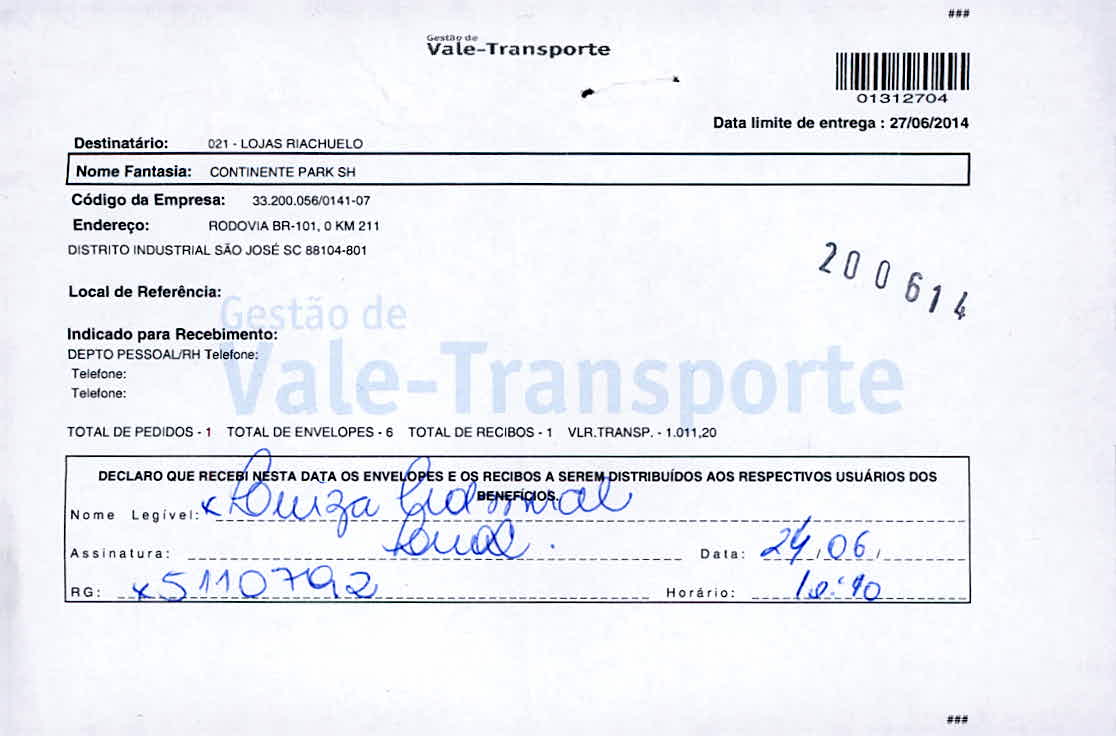 ###
Gestão de
Vale-Transporte
01312704
Data limite de entrega : 27/06/2014
Destinatário: 021 - LOJAS RIACHUELO
Nome Fantasia: CONTINENTE PARK SH
Código da Empresa: 33.200.056/0141-07
Endereço: RODOVIA BR-101, 0 KM 211
DISTRITO INDUSTRIAL SÃO JOSÉ SC 88104-801
200614
Local de Referência:
Gestão de
Vale-Transporte
Indicado para Recebimento:
DEPTO PESSOAL/RH Telefone:
Telefone:
Telefone:
TOTAL DE PEDIDOS - 1 TOTAL DE ENVELOPES - 6 TOTAL DE RECIBOS - 1 VLR.TRANSP. - 1.011,20
DECLARO QUE RECEBI NESTA DATA OS ENVELOPES E OS RECIBOS A SEREM DISTRIBUÍDOS AOS RESPECTIVOS USUÁRIOS DOS
BENEFÍCIOS.
Nome Legível: x
Assinatura: Data: 24/06/
RG: x5110792 Horário:
###